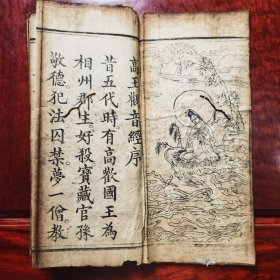 高王觀音經序
昔五代時有高歡國王為
相州郡主好殺寳藏官孫
敬德犯法囚禁夢一僧教